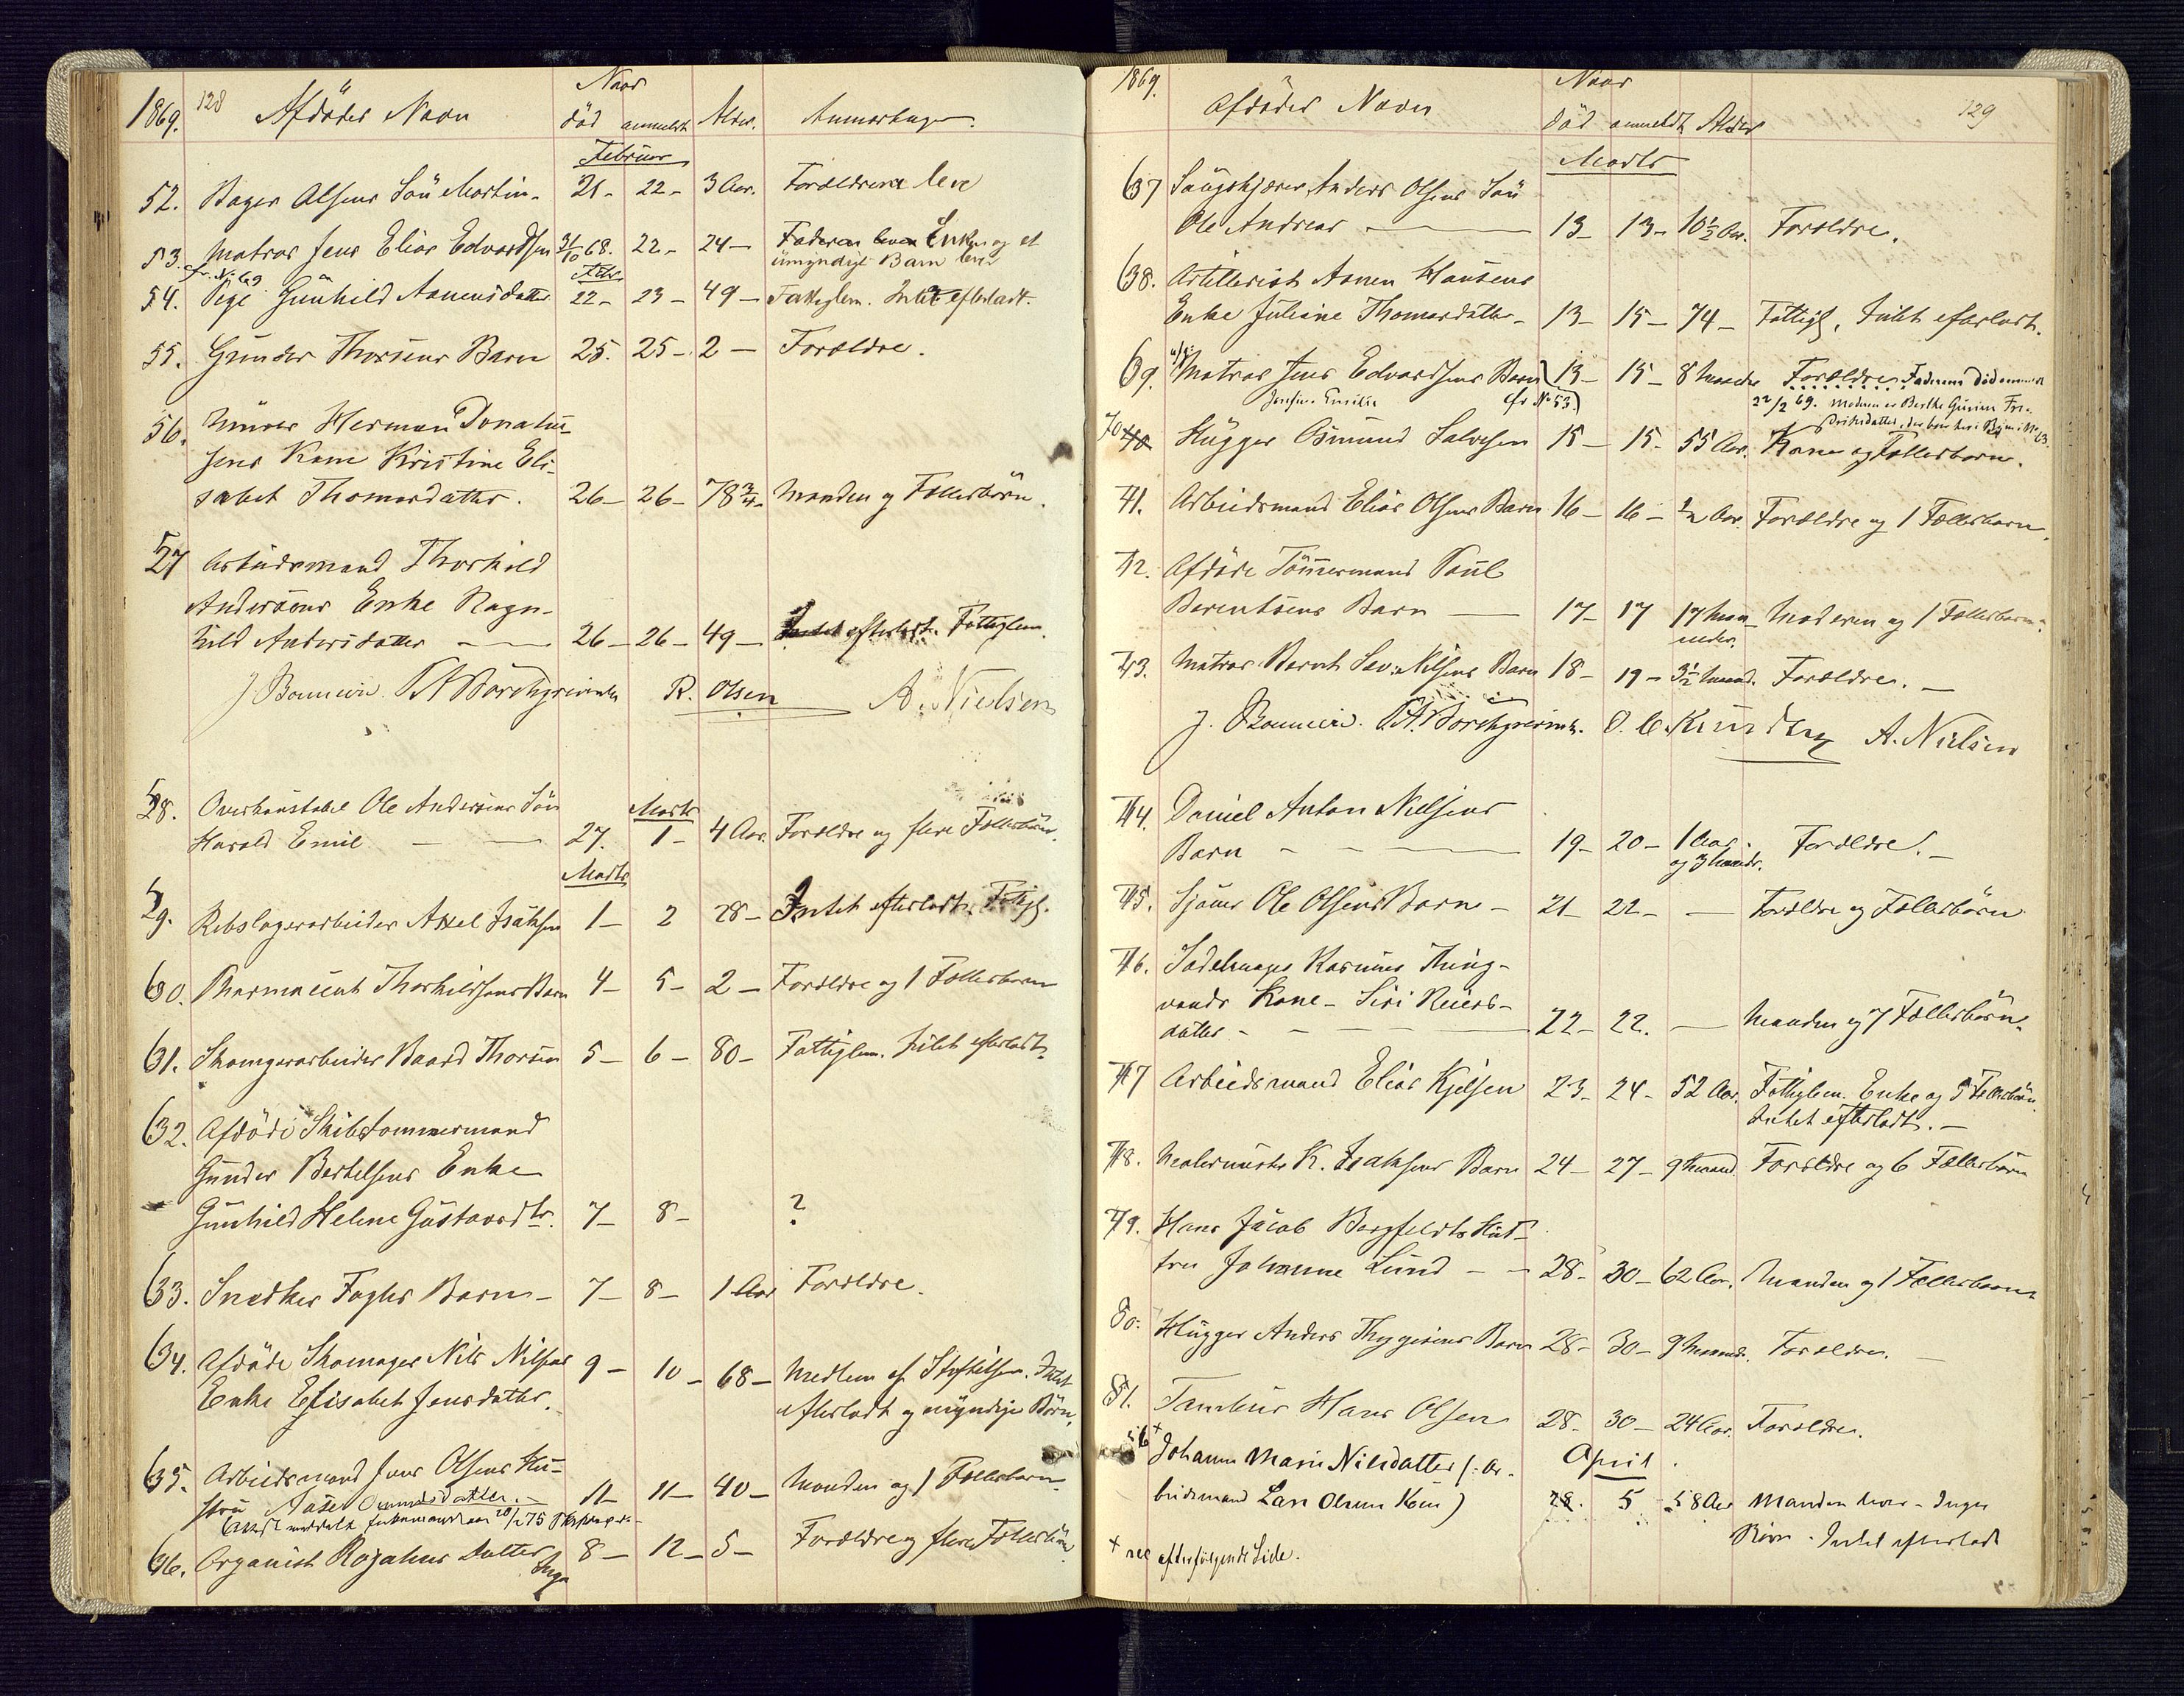 1869. 128 Afdödes Navn Naar död anmeldt Alder. Anmærkninger.
Februar
52. Bager Olsens Søn Martin. 21 - 22 - 3 Aar. Forældrene leve
53. Matros Jens Elias Edvardsen 31/10 68. 22 - 24 - Faderen Enken og et
umyndigt Barn lever
cfr. No 69 Febr.
54. Pige Gunhild Aanensdatter 22 - 23 - 49 - Fattiglem. Intet efterladt.
55. Gunder Thorsens Barn 25. 25 - 2 - Forældre.
56. Murer Herman Donatus-
sens Kone Kristine Eli-
sabet Thomasdatter. 26 - 26 - 78 3/4 - Manden og Fællesbörn.
57 Arbeidsmand Thorkild
Andersens Enke Ragn-
hild Andersdatter - 26 - 26 - 49 - Intet efterladt. Fattiglem.
J Bonnevie. Borchgrevink R. Olsen A. Nielsen
58. Overkonstabel Ole Andersens Sön Marts
Harald Emil - 27. 1 - 4 Aar. Forældre og flere Fællesbörn.
Marts
59. Rebslagerarbeider Axel Isaksen 1 - 2 28 - Intet efterladt. Fattigl.
60. Pharmaceut Thorkildsens Barn 4 - 5 - 2 - Forældre og 1 Fællesbarn
61. Skomagerarbeider Baard Thorsen 5 - 6 - 80 - Fattiglem. Intet efterladt.
62. Afdöde Skibstömmermand
Gunder Bertelsens Enke
Gunhild Helene Gustavsdtr. 7 - 8 - ?
63. Snedker Foghs Barn - 7 - 8 - 1 Aar Forældre.
64. Afdöde Skomager Nils Nilsens 9 - 10 - 68 - Medlem af Stiftelsen. Intet
Enke Elisabet Jensdatter. efterladt og myndige Börn.
65. Arbeidsmand Jens Olsens Hu-
stru Aase Omundsdatter. - 11 - 11 - 40 - Manden og 1 Fællesbarn
66. Organist Rojahns Datter Inga 8 - 12 - 5 - Forældre og flere Fællesbörn
1869. Afdödes Navn Naar död anmeldt Alder 129
Marts
67 Saugskjærer Anders Olsens Sön
Ole Andreas - 13 - 13 - 10 1/2 Aar. Forældre.
68. Artillerist Aanen Hansens
Enke Juliane Thomasdatter - 13 - 15 - 74 - Fattigl. Intet efterladt.
69. Matros Jens Edvardsens Barn 13 - 15 - 8 Maaneder Forældre Faderens död anmeldt
Josefine Emilie (cfr No 53.) 22/2 69. Moderen er Berthe Gurine Fre-
driksdatter, der bor her i Byen No 63.
70 Hugger Osmund Salvesen 15 - 15 - 55 Aar. Kone og Fællesbarn.
71. Arbeidsmand Elias Olsens Barn 16 - 16 - 1/2 Aar. Forældre og 1 Fællesbarn.
72. Afdöde Tömmermand Paul
Berentsens Barn - 17 - 17 17 Maa- Moderen og 1 Fællesbarn.
neder.
73. Matros Bernt Sev. Nilsens Barn 18 - 19 - 3 1/2 Maand. Forældre. -
J. Bonnevie. Borchgrevink. O. C. Kundsen A. Nielsen
74. Daniel Anton Nielsens
Barn - - 19 - 20 - 1 Aar. Forældre. -
og 3 Maaneder.
75. Sjömd Ole Olsens Barn - 21 - 22 - - Forældre og Fællesbörn
76. Sadelmager Rasmus Thing-
vands Kone - Siri Reiers-
datter - - 22 - 22. - Manden og 7 Fællesbörn.
77 Arbeidsmand Elias Kjelsen 23 - 24 - 52 Aar. Fattiglem. Enke og 5 Fællesbörn.
Intet efterladt. -
78. Malermester K. Isaksens Barn 24 - 27 - 9 Maand. Forældre og 6 Fællesbörn
79. Hans Jacob Bergfeldts Hus-
tru Johanne Lund - - 28 - 30 - 62 Aar. Manden og 1 Fællesbarn
80. Hugger Anders Thygesens Barn 28 - 30 - 9 Maaneder. Forældre. -
81. Tambur Hans Olsen 28 - 30 - 24 Aar. Forældre.
+ Johanne Marie Nilsdatter (: Ar- April
beidsmand Lars Olsens Kone) 28. 5 58 Aar Manden lever - Ingen
Börn - Intet efterladt
+ see efterfölgende Side.